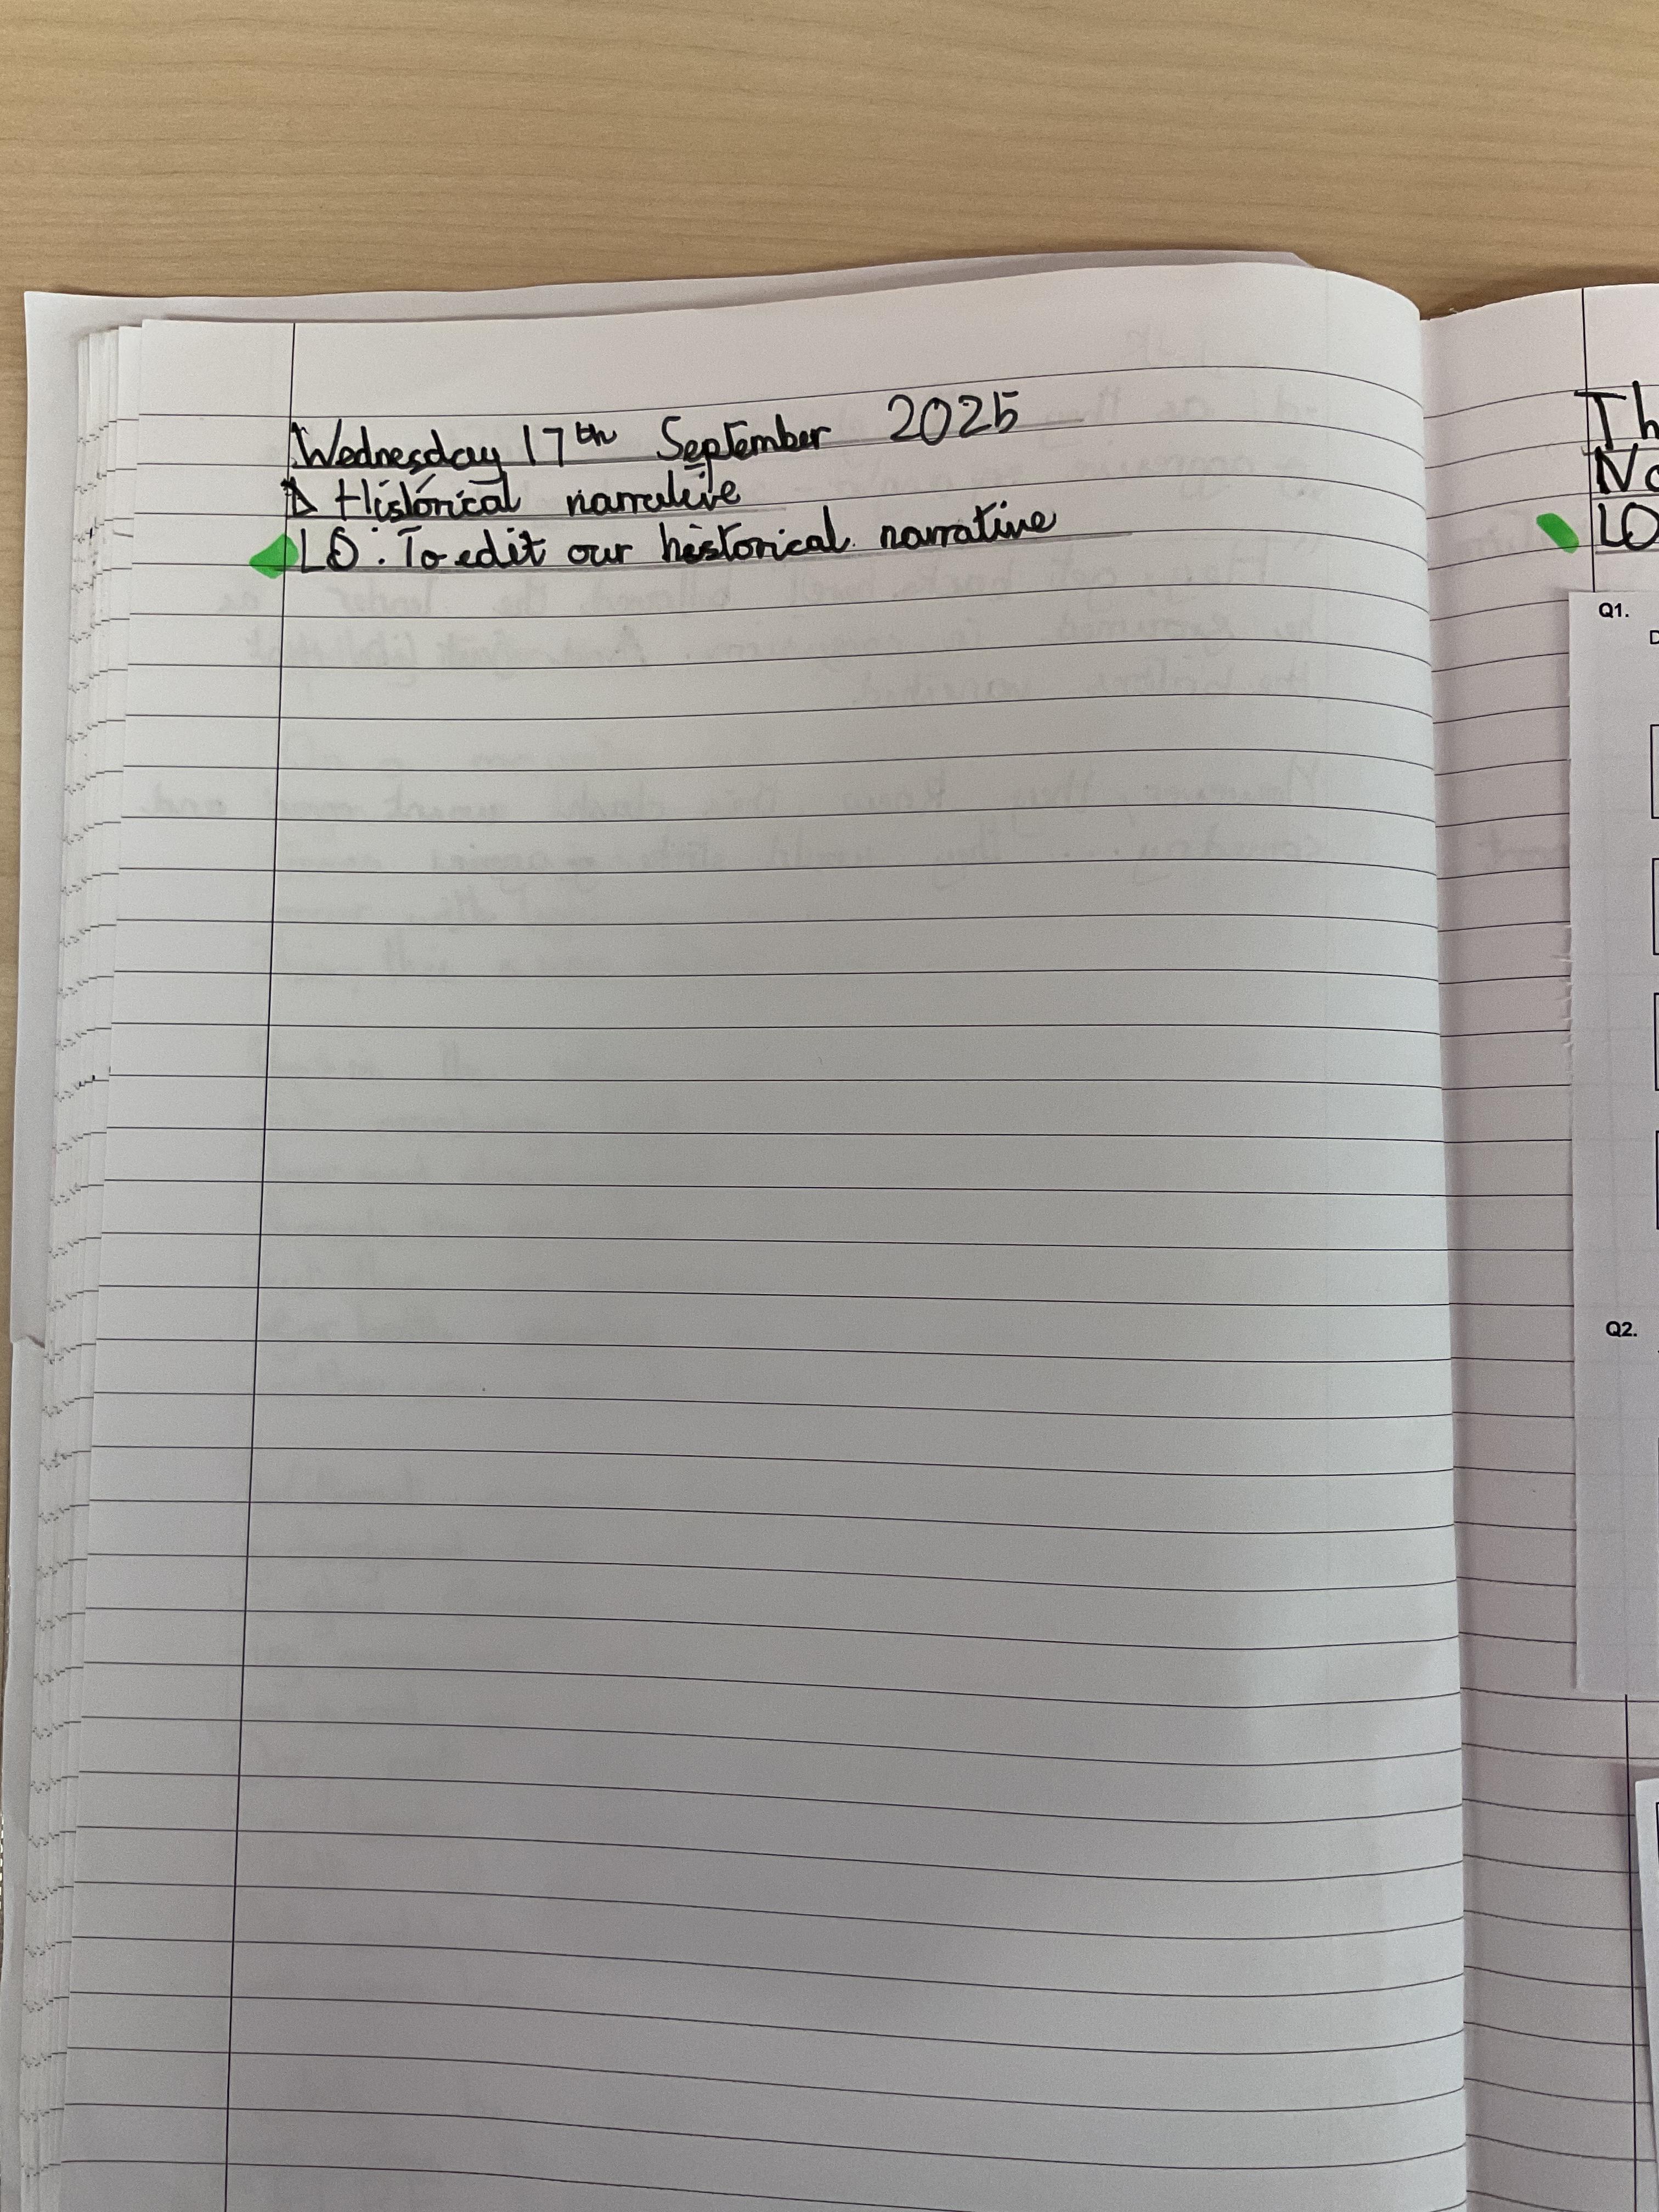 Wednesday 17th September 2025
A Historical narrative
LO: To edit our historical narrative
Th
No
LO
Q1.
D
Q2.